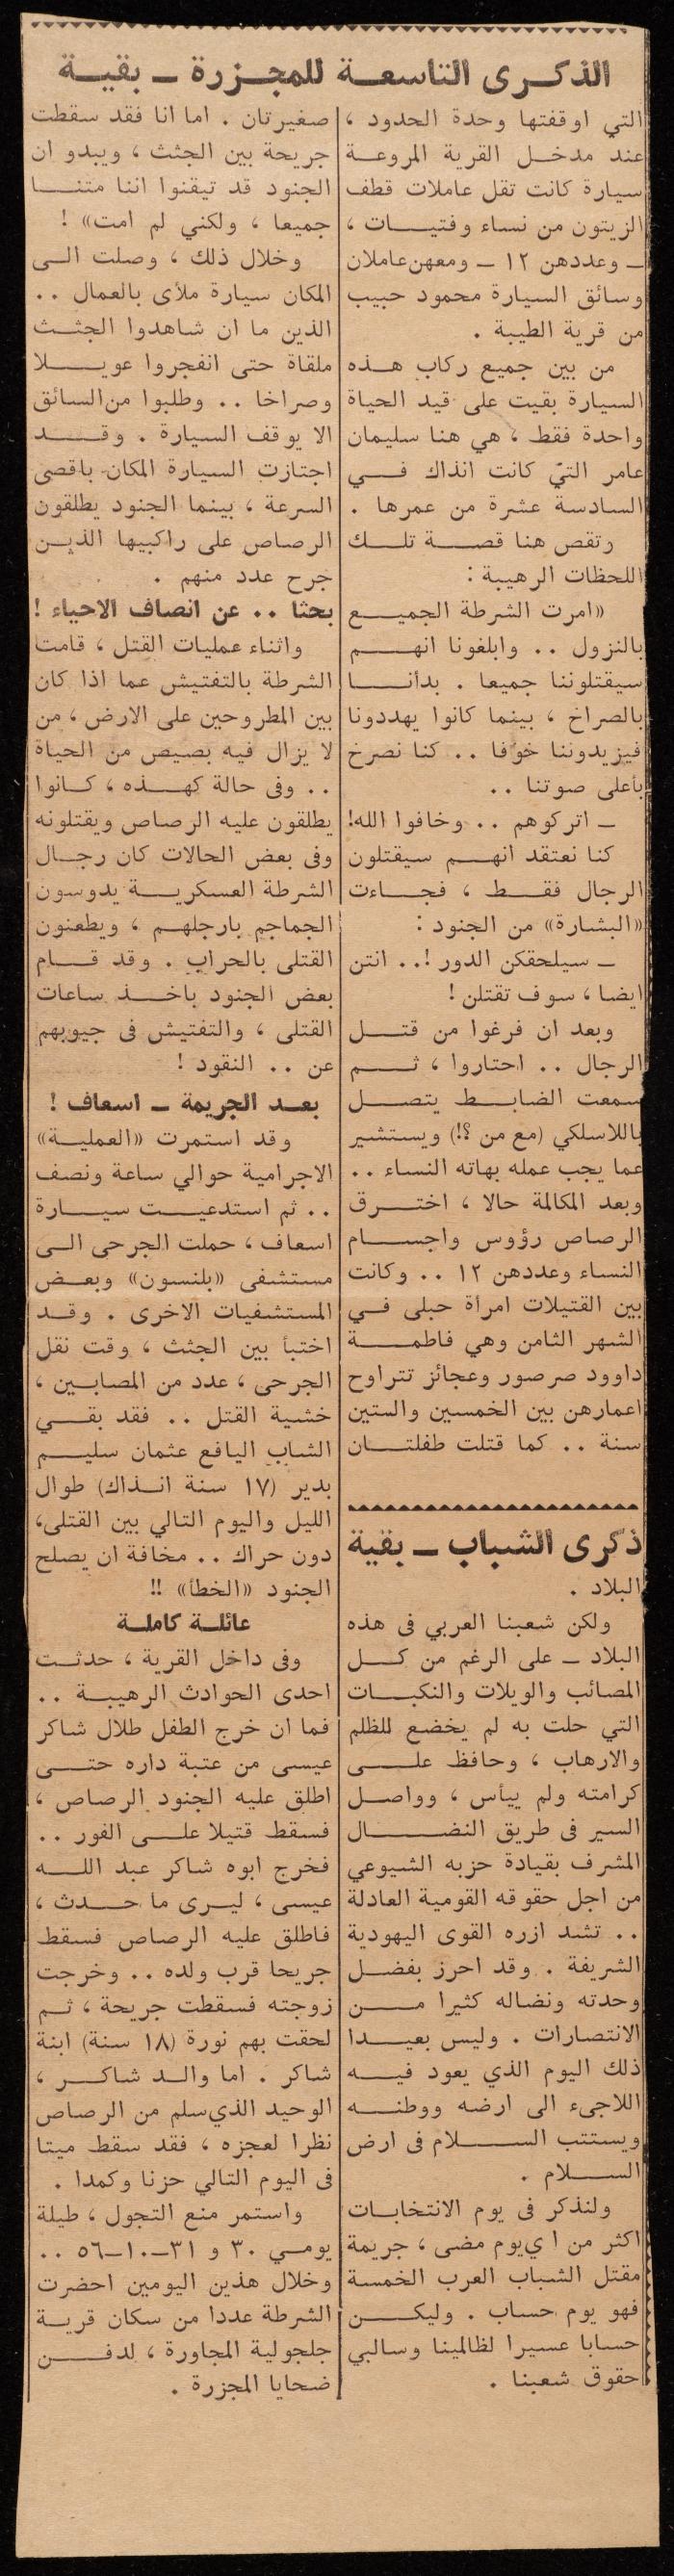 الذكرى التاسعة للمجزرة ـ بقية
التي اوقفتها وحدة الحدود ،
عند مدخل القرية المروعة
سيارة كانت تقل عاملات قطف
الزيتون من نساء وفتيات ،
ـ وعددهن ١٢ ـ ومعهن عاملان
وسائق السيارة محمود حبيب
من قرية الطيبة .
من بين جميع ركاب هذه
السيارة بقيت على قيد الحياة
واحدة فقط ، هي هنا سليمان
عامر التي كانت انذاك في
السادسة عشرة من عمرها .
رتقص هنا قصة تلك
اللحظات الرهيبة :
«امرت الشرطة الجميع
بالنزول .. وابلغونا انهم
سيقتلوننا جميعا . بدأنا
بالصراخ ، بينما كانوا يهددونا
فيزيدوننا خوفا .. كنا نصرخ
بأعلى صوتنا ..
ـ اتركوهم .. وخافوا الله!
كنا نعتقد انهم سيقتلون
الرجال فقط ، فجاءت
«البشارة» من الجنود :
ـ سيلحقكن الدور !.. انتن
ايضا ، سوف تقتلن !
وبعد ان فرغوا من قتل
الرجال .. احتاروا ، ثم
سمعت الضابط يتصل
باللاسلكي (مع من ؟!) ويستشير
عما يجب عمله بهاته النساء ..
وبعد المكالمة حالا ، اخترق
الرصاص رؤوس واجسام
النساء وعددهن ١٢ .. وكانت
بين القتيلات امرأة حبلى في
الشهر الثامن وهي فاطمة
داوود صرصور وعجائز تتراوح
اعمارهن بين الخمسين والستين
سنة .. كما قتلت طفلتان
صغيرتان . اما انا فقد سقطت
جريحة بين الجثث ، ويبدو ان
الجنود قد تيقنوا اننا متنا
جميعا ، ولكني لم امت» !
وخلال ذلك ، وصلت الى
المكان سيارة ملأى بالعمال ..
الذين ما ان شاهدوا الجثث
ملقاة حتى انفجروا عويلا
وصراخا .. وطلبوا من السائق
الا يوقف السيارة . وقد
اجتازت السيارة المكان باقصى
السرعة ، بينما الجنود يطلقون
الرصاص على راكبيها الذين
جرح عدد منهم .
بحثا .. عن انصاف الاحياء !
واثناء عمليات القتل ، قامت
الشرطة بالتفتيش عما اذا كان
بين المطروحين على الارض ، من
لا يزال فيه بصيص من الحياة
.. وفى حالة كهذه ، كانوا
يطلقون عليه الرصاص ويقتلونه
وفى بعض الحالات كان رجال
الشرطة العسكرية يدوسون
الجماجم بارجلهم ، ويطعنون
القتلى بالحراب . وقد قام
بعض الجنود باخذ ساعات
القتلى ، والتفتيش فى جيوبهم
عن .. النقود !
بعد الجريمة ـ اسعاف !
وقد استمرت «العملية»
الاجرامية حوالي ساعة ونصف
.. ثم استدعيت سيارة
اسعاف ، حملت الجرحى الى
مستشفى «بلنسون» وبعض
المستشفيات الاخرى . وقد
اختبأ بين الجثث ، وقت نقل
الجرحى ، عدد من المصابين ،
خشية القتل .. فقد بقي
الشاب اليافع عثمان سليم
بدير (١٧ سنة انذاك) طوال
الليل واليوم التالي بين القتلى،
دون حراك .. مخافة ان يصلح
الجنود «الخطأ» !!
عائلة كاملة
وفى داخل القرية ، حدثت
احدى الحوادث الرهيبة ..
فما ان خرج الطفل طلال شاكر
عيسى من عتبة داره حتى
اطلق عليه الجنود الرصاص ،
فسقط قتيلا على الفور ..
فخرج ابوه شاكر عبد الله
عيسى ، ليرى ما حدث ،
فاطلق عليه الرصاص فسقط
جريحا قرب ولده .. وخرجت
زوجته فسقطت جريحة ، ثم
لحقت بهم نورة (١٨ سنة) ابنة
شاكر . اما والد شاكر ،
الوحيد الذي سلم من الرصاص
نظرا لعجزه ، فقد سقط ميتا
فى اليوم التالي حزنا وكمدا .
واستمر منع التجول ، طيلة
يومي ٣٠ و ٣١ـ١٠ـ٥٦ ..
وخلال هذين اليومين احضرت
الشرطة عددا من سكان قرية
جلجولية المجاورة ، لدفن
ضحايا المجزرة .
ذكرى الشباب ـ بقية
البلاد .
ولكن شعبنا العربي فى هذه
البلاد ـ على الرغم من كل
المصائب والويلات والنكبات
التي حلت به لم يخضع للظلم
والارهاب ، وحافظ على
كرامته ولم ييأس ، وواصل
السير فى طريق النضال
المشرف بقيادة حزبه الشيوعي
من اجل حقوقه القومية العادلة
.. تشد ازره القوى اليهودية
الشريفة . وقد احرز بفضل
وحدته ونضاله كثيرا من
الانتصارات . وليس بعيدا
ذلك اليوم الذي يعود فيه
اللاجىء الى ارضه ووطنه
ويستتب السلام فى ارض
السلام .
ولنذكر فى يوم الانتخابات
اكثر من اي يوم مضى ، جريمة
مقتل الشباب العرب الخمسة
فهو يوم حساب . وليكن
حسابا عسيرا لظالمينا وسالبي
حقوق شعبنا .